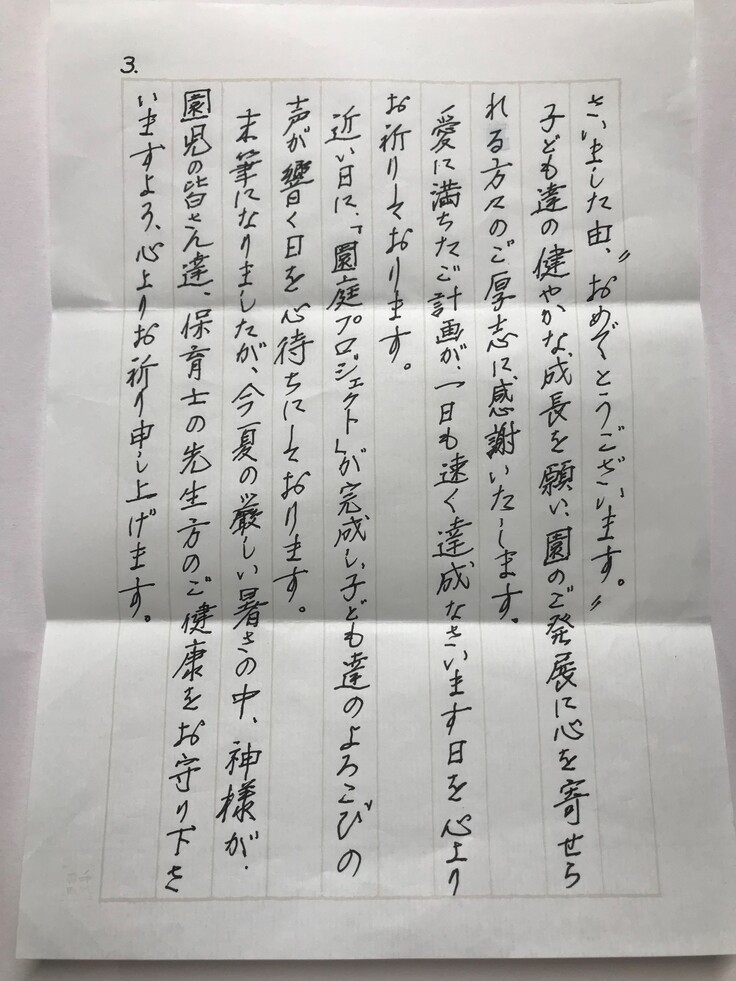 3.
さいました由、〃おめでとうございます。〃
子ども達の健やかな成長を願い、園のご発展に心を寄せら
れる方々のご厚志に感謝いたします。
愛に満ちたご計画が、一日も速く達成なさいます日を心より
お祈りしております。
近い日に、「園庭プロジェクト」が完成し、子ども達のよろこびの
声が響く日を心待ちにしております。
末筆になりましたが、今夏の厳しい暑さの中、神様が、
園児の皆さん達、保育士の先生方のご健康をお守り下さ
いますよう、心よりお祈り申し上げます。